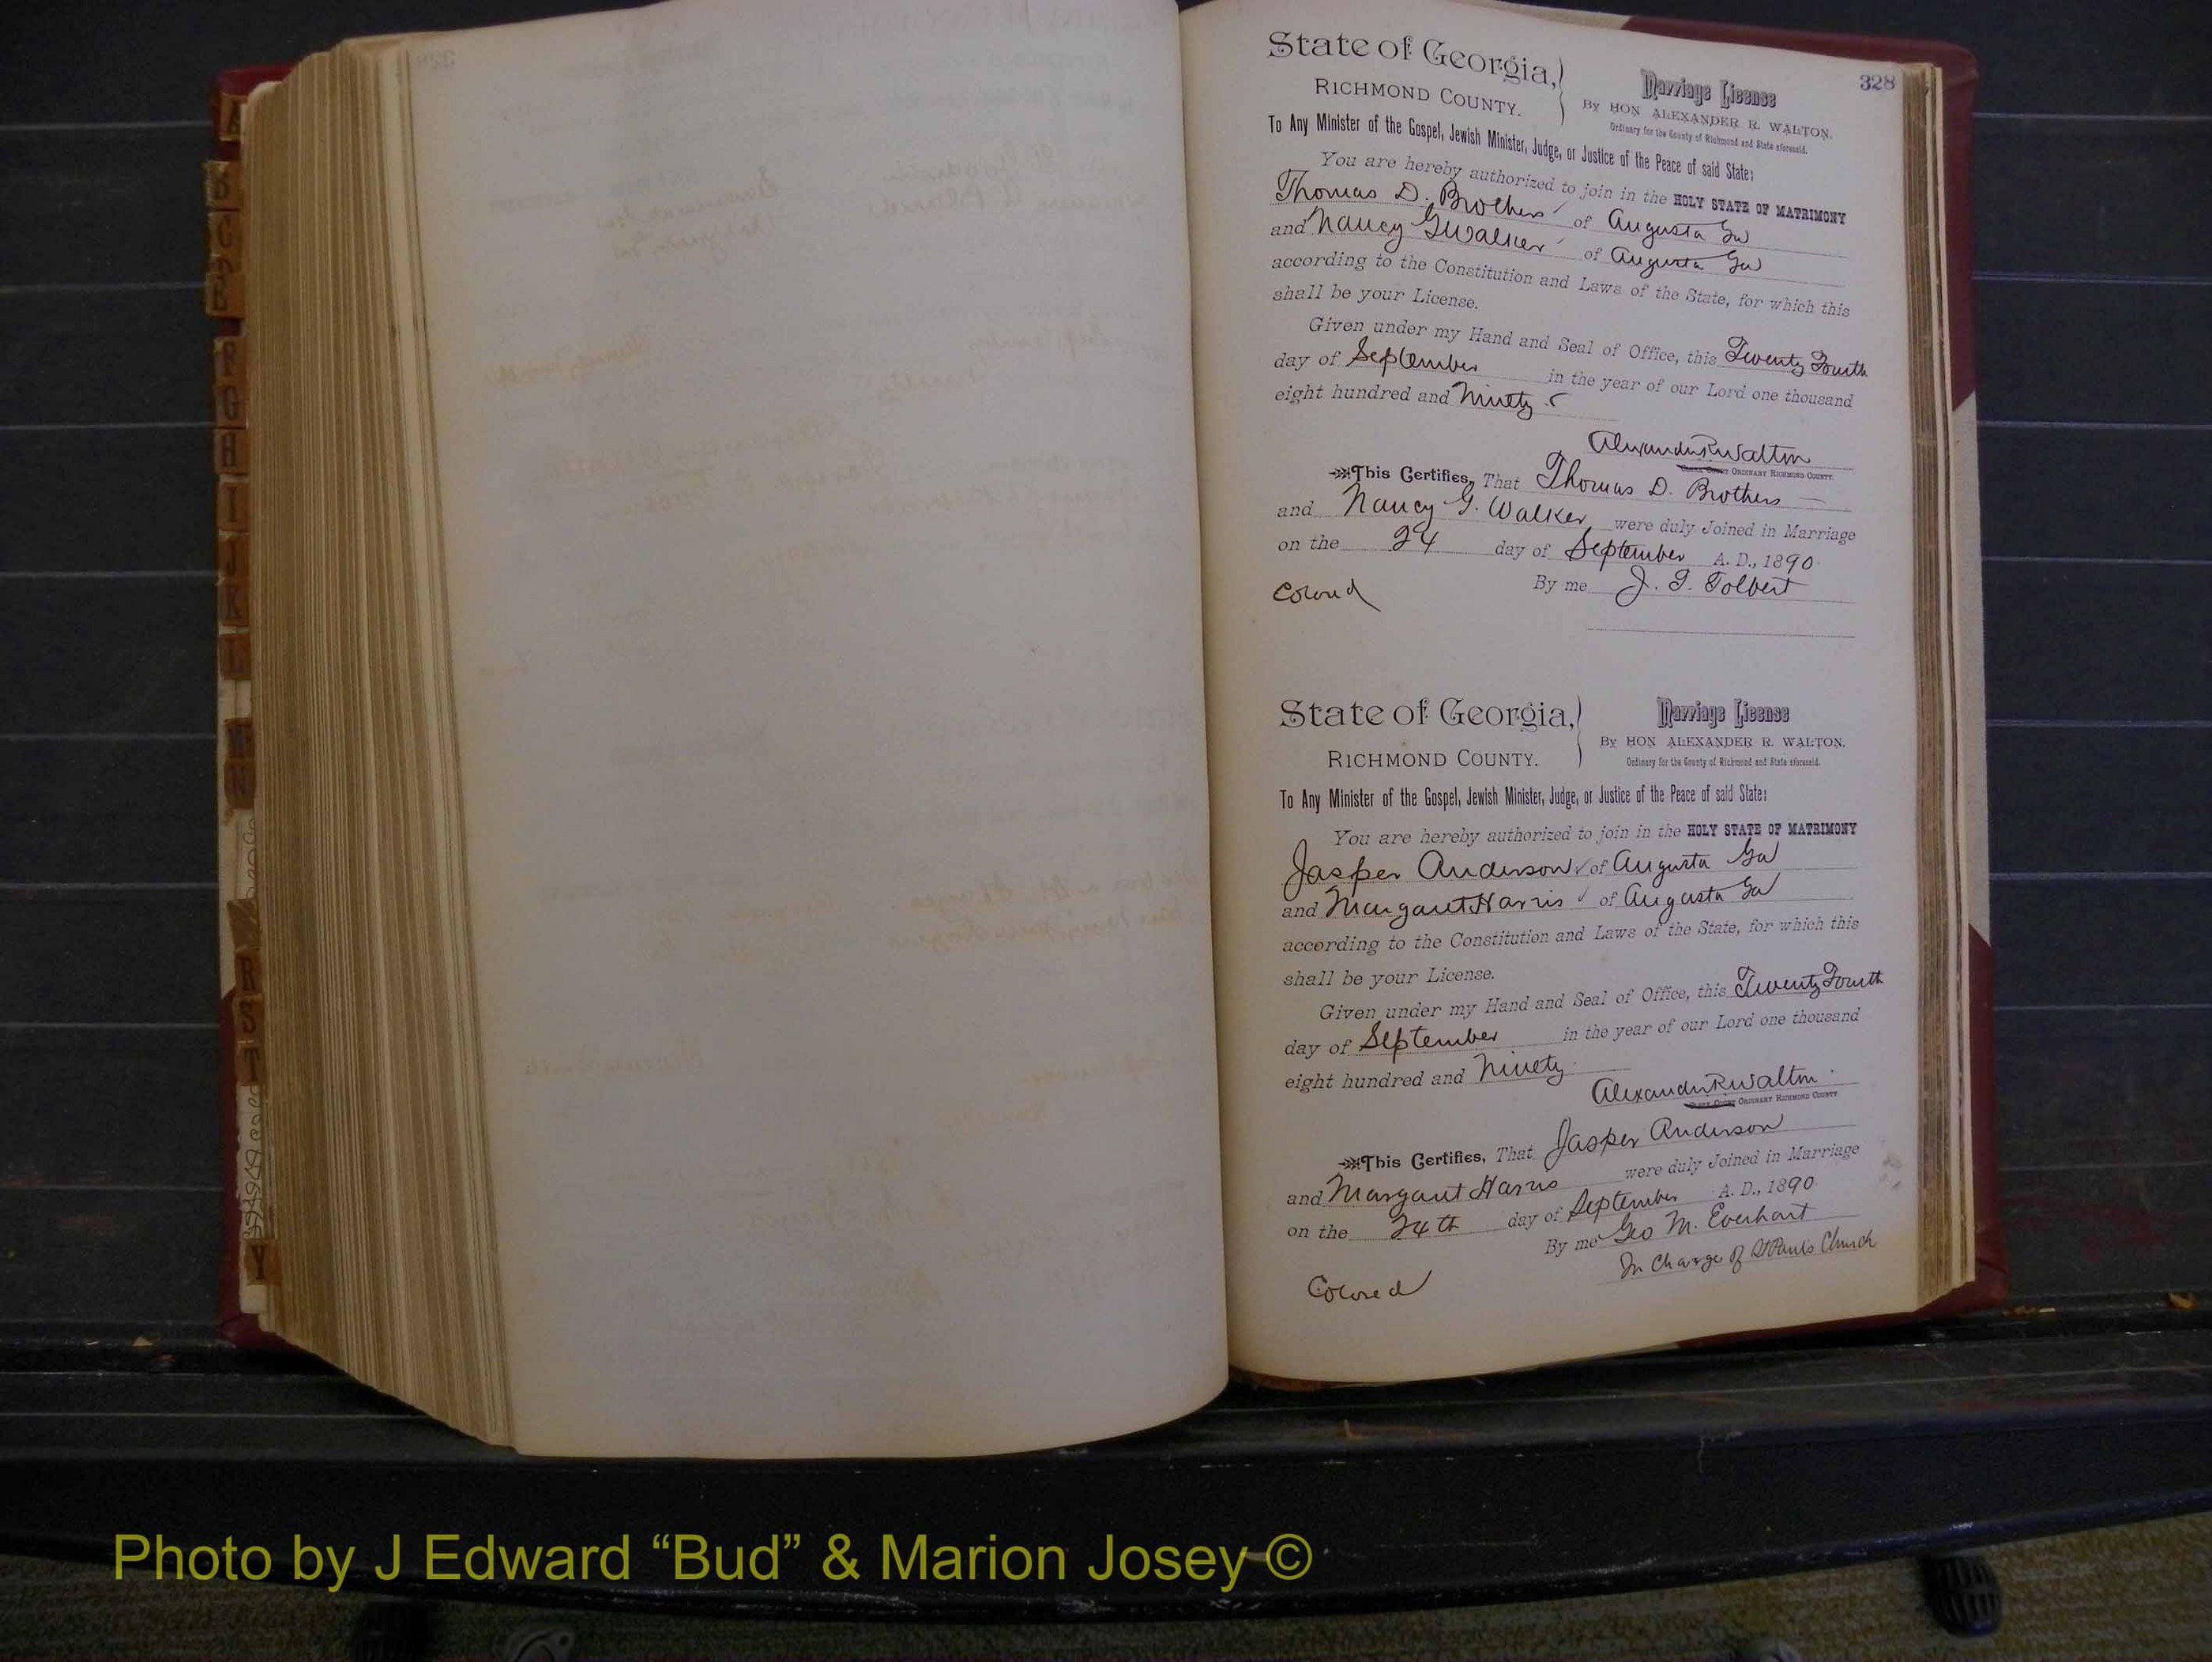 328
State of Georgia,
RICHMOND COUNTY.
Marriage License
By HON ALEXANDER R. WALTON,
Ordinary for the County of Richmond and State aforesaid.
To Any Minister of the Gospel, Jewish Minister, Judge, or Justice of the Peace of said State:
You are hereby authorized to join in the HOLY STATE OF MATRIMONY
Thomas D. Brothers of Augusta Ga
and Nancy G Walker of Augusta Ga
according to the Constitution and Laws of the State, for which this
shall be your License.
Given under my Hand and Seal of Office, this Twenty Fourth
day of September in the year of our Lord one thousand
eight hundred and Ninety
Alexander R Walton
ORDINARY RICHMOND COUNTY.
This Certifies, That Thomas D. Brothers
and Nancy G. Walker were duly Joined in Marriage
on the 24 day of September A. D., 1890
By me J. T. Tolbert
Colored
State of Georgia,
RICHMOND COUNTY.
Marriage License
By HON ALEXANDER R. WALTON,
Ordinary for the County of Richmond and State aforesaid.
To Any Minister of the Gospel, Jewish Minister, Judge, or Justice of the Peace of said State:
You are hereby authorized to join in the HOLY STATE OF MATRIMONY
Jasper Anderson of Augusta Ga
and Margaret Harris of Augusta Ga
according to the Constitution and Laws of the State, for which this
shall be your License.
Given under my Hand and Seal of Office, this Twenty Fourth
day of September in the year of our Lord one thousand
eight hundred and Ninety
Alexander R Walton
ORDINARY RICHMOND COUNTY
This Certifies, That Jasper Anderson
and Margaret Harris were duly Joined in Marriage
on the 24th day of September A. D., 1890
By me Geo M. Everhart
In Charge of St Pauls Church
Colored
A
B
C
D
E
F
G
H
I
J
K
L
M
N
R
S
T
Y
Photo by J Edward “Bud” & Marion Josey ©